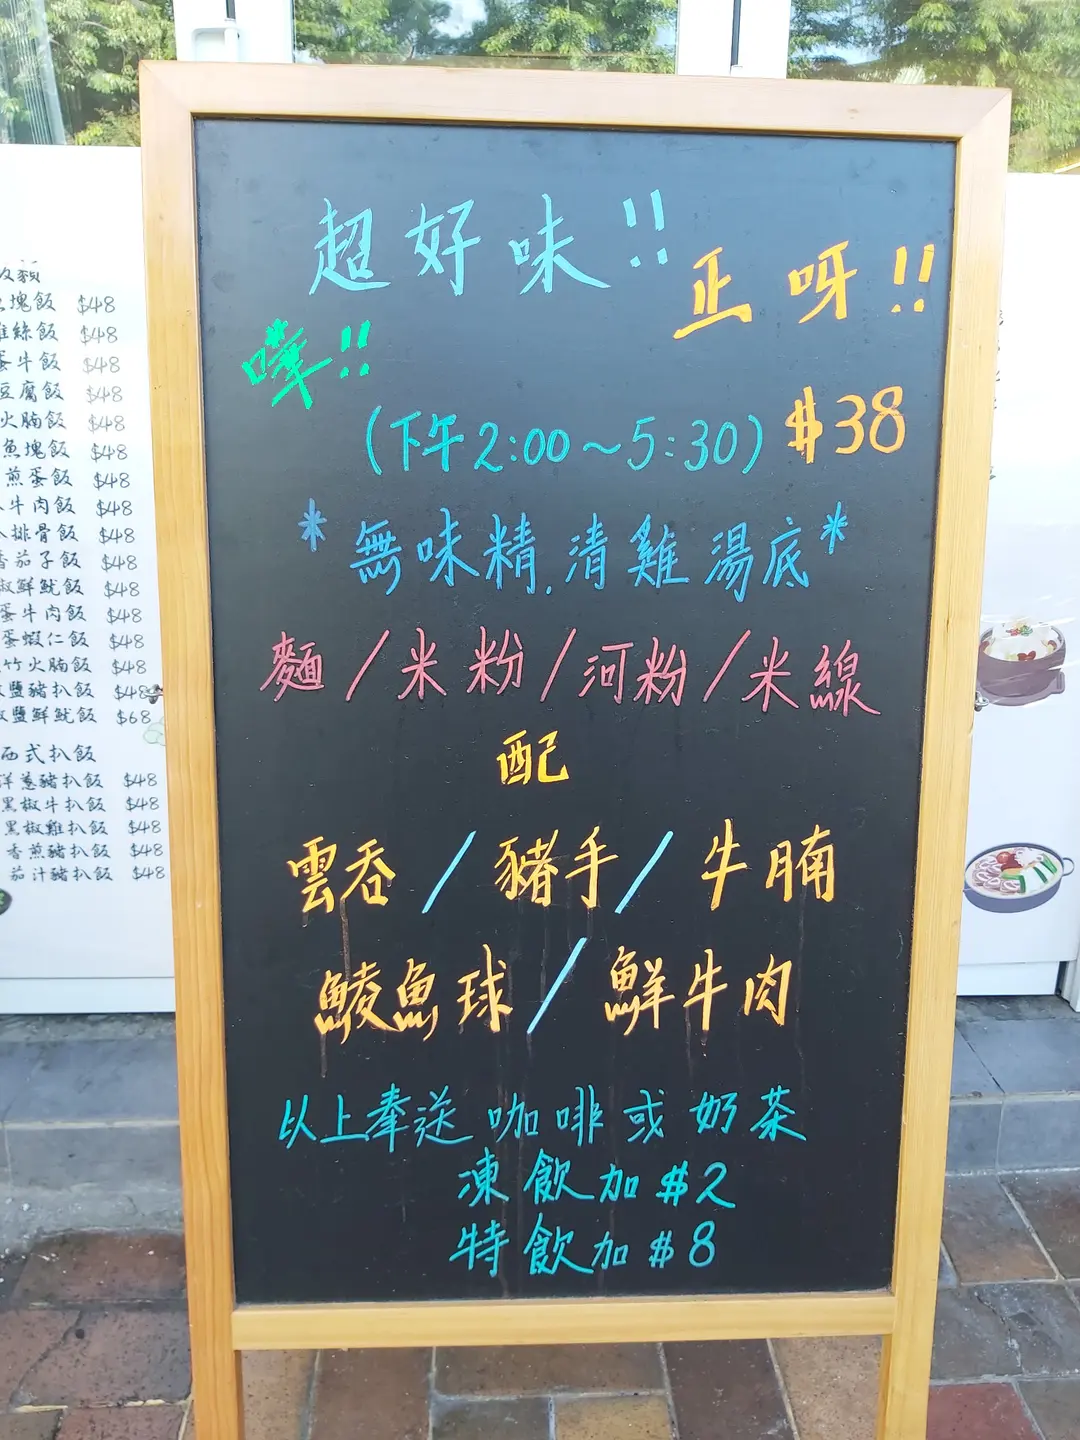 超好味!!
正呀!!
嘩!!
(下午2:00~5:30) $38
*無味精.清雞湯底*
麵/米粉/河粉/米線
配
雲吞/豬手/牛腩
鯪魚球/鮮牛肉
以上奉送咖啡或奶茶
凍飲加$2
特飲加$8
塊飯 $48
絲飯 $48
蛋牛飯 $48
豆腐飯 $48
火腩飯 $48
魚塊飯 $48
煎蛋飯 $48
牛肉飯 $48
排骨飯 $48
茄子飯 $48
椒鮮魷飯 $48
蛋牛肉飯 $48
蛋蝦仁飯 $48
竹火腩飯 $48
鹽豬扒飯 $48
鹽鮮魷飯 $68
西式扒飯
洋蔥豬扒飯 $48
黑椒牛扒飯 $48
黑椒雞扒飯 $48
香煎豬扒飯 $48
茄汁豬扒飯 $48